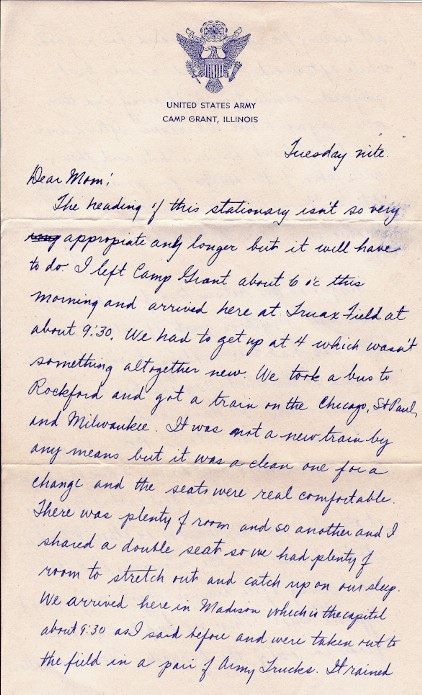 UNITED STATES ARMY
CAMP GRANT, ILLINOIS
Tuesday nite.
Dear Mom!
The heading of this stationary isn't so very
appropiate any longer but it will have
to do. I left Camp Grant about 6 o'c this
morning and arrived here at Truax Field at
about 9:30. We had to get up at 4 which wasn't
something altogether new. We took a bus to
Rockford and got a train on the Chicago, St Paul,
and Milwaukee. It was not a new train by
any means but it was a clean one for a
change and the seats were real comfortable.
There was plenty of room and so another and I
shared a double seat so we had plenty of
room to stretch out and catch up on our sleep.
We arrived here in Madison which is the capitol
about 9:30 as I said before and were taken out to
the field in a pair of Army Trucks. It rained